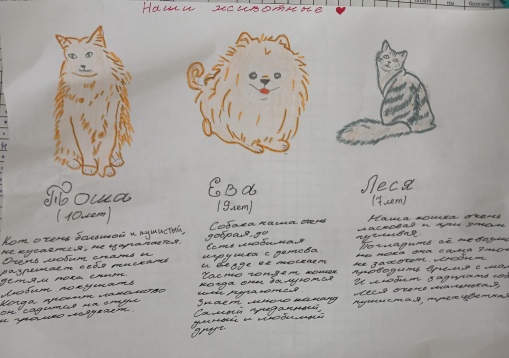 Наши животные
Тоша
(10 лет)
Кот очень большой и пушистый,
не кусается, не царапается.
Очень любит спать и
разрешает себя тискать
детям пока спит.
Любит покушать
Когда просит лакомство
он садится на стул
и громко мяукает.
Ева
(9 лет)
Собака наша очень
добрая,
Есть любимая
игрушка с детства
и везде её таскает
Часто гоняет кошек
когда они балуются
или ругаются
Знает много команд
Самый преданный,
умный и любимый
друг.
Леся
(7 лет)
Наша кошка очень
ласковая и при этом
Погладить её
но пока она сама этого
не захочет. Любит
проводить время с
И любит
Леся очень маленькая,
пушистая, трёхцветная